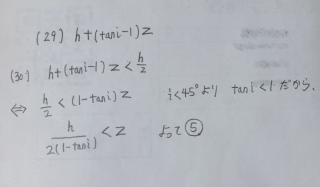 (29) h+(tani-1)z
(30) h+(tani-1)z<h/2
⇔ h/2 < (1-tani)z   i<45°より tani<1だから、
h/2(1-tani) < z   よって⑤